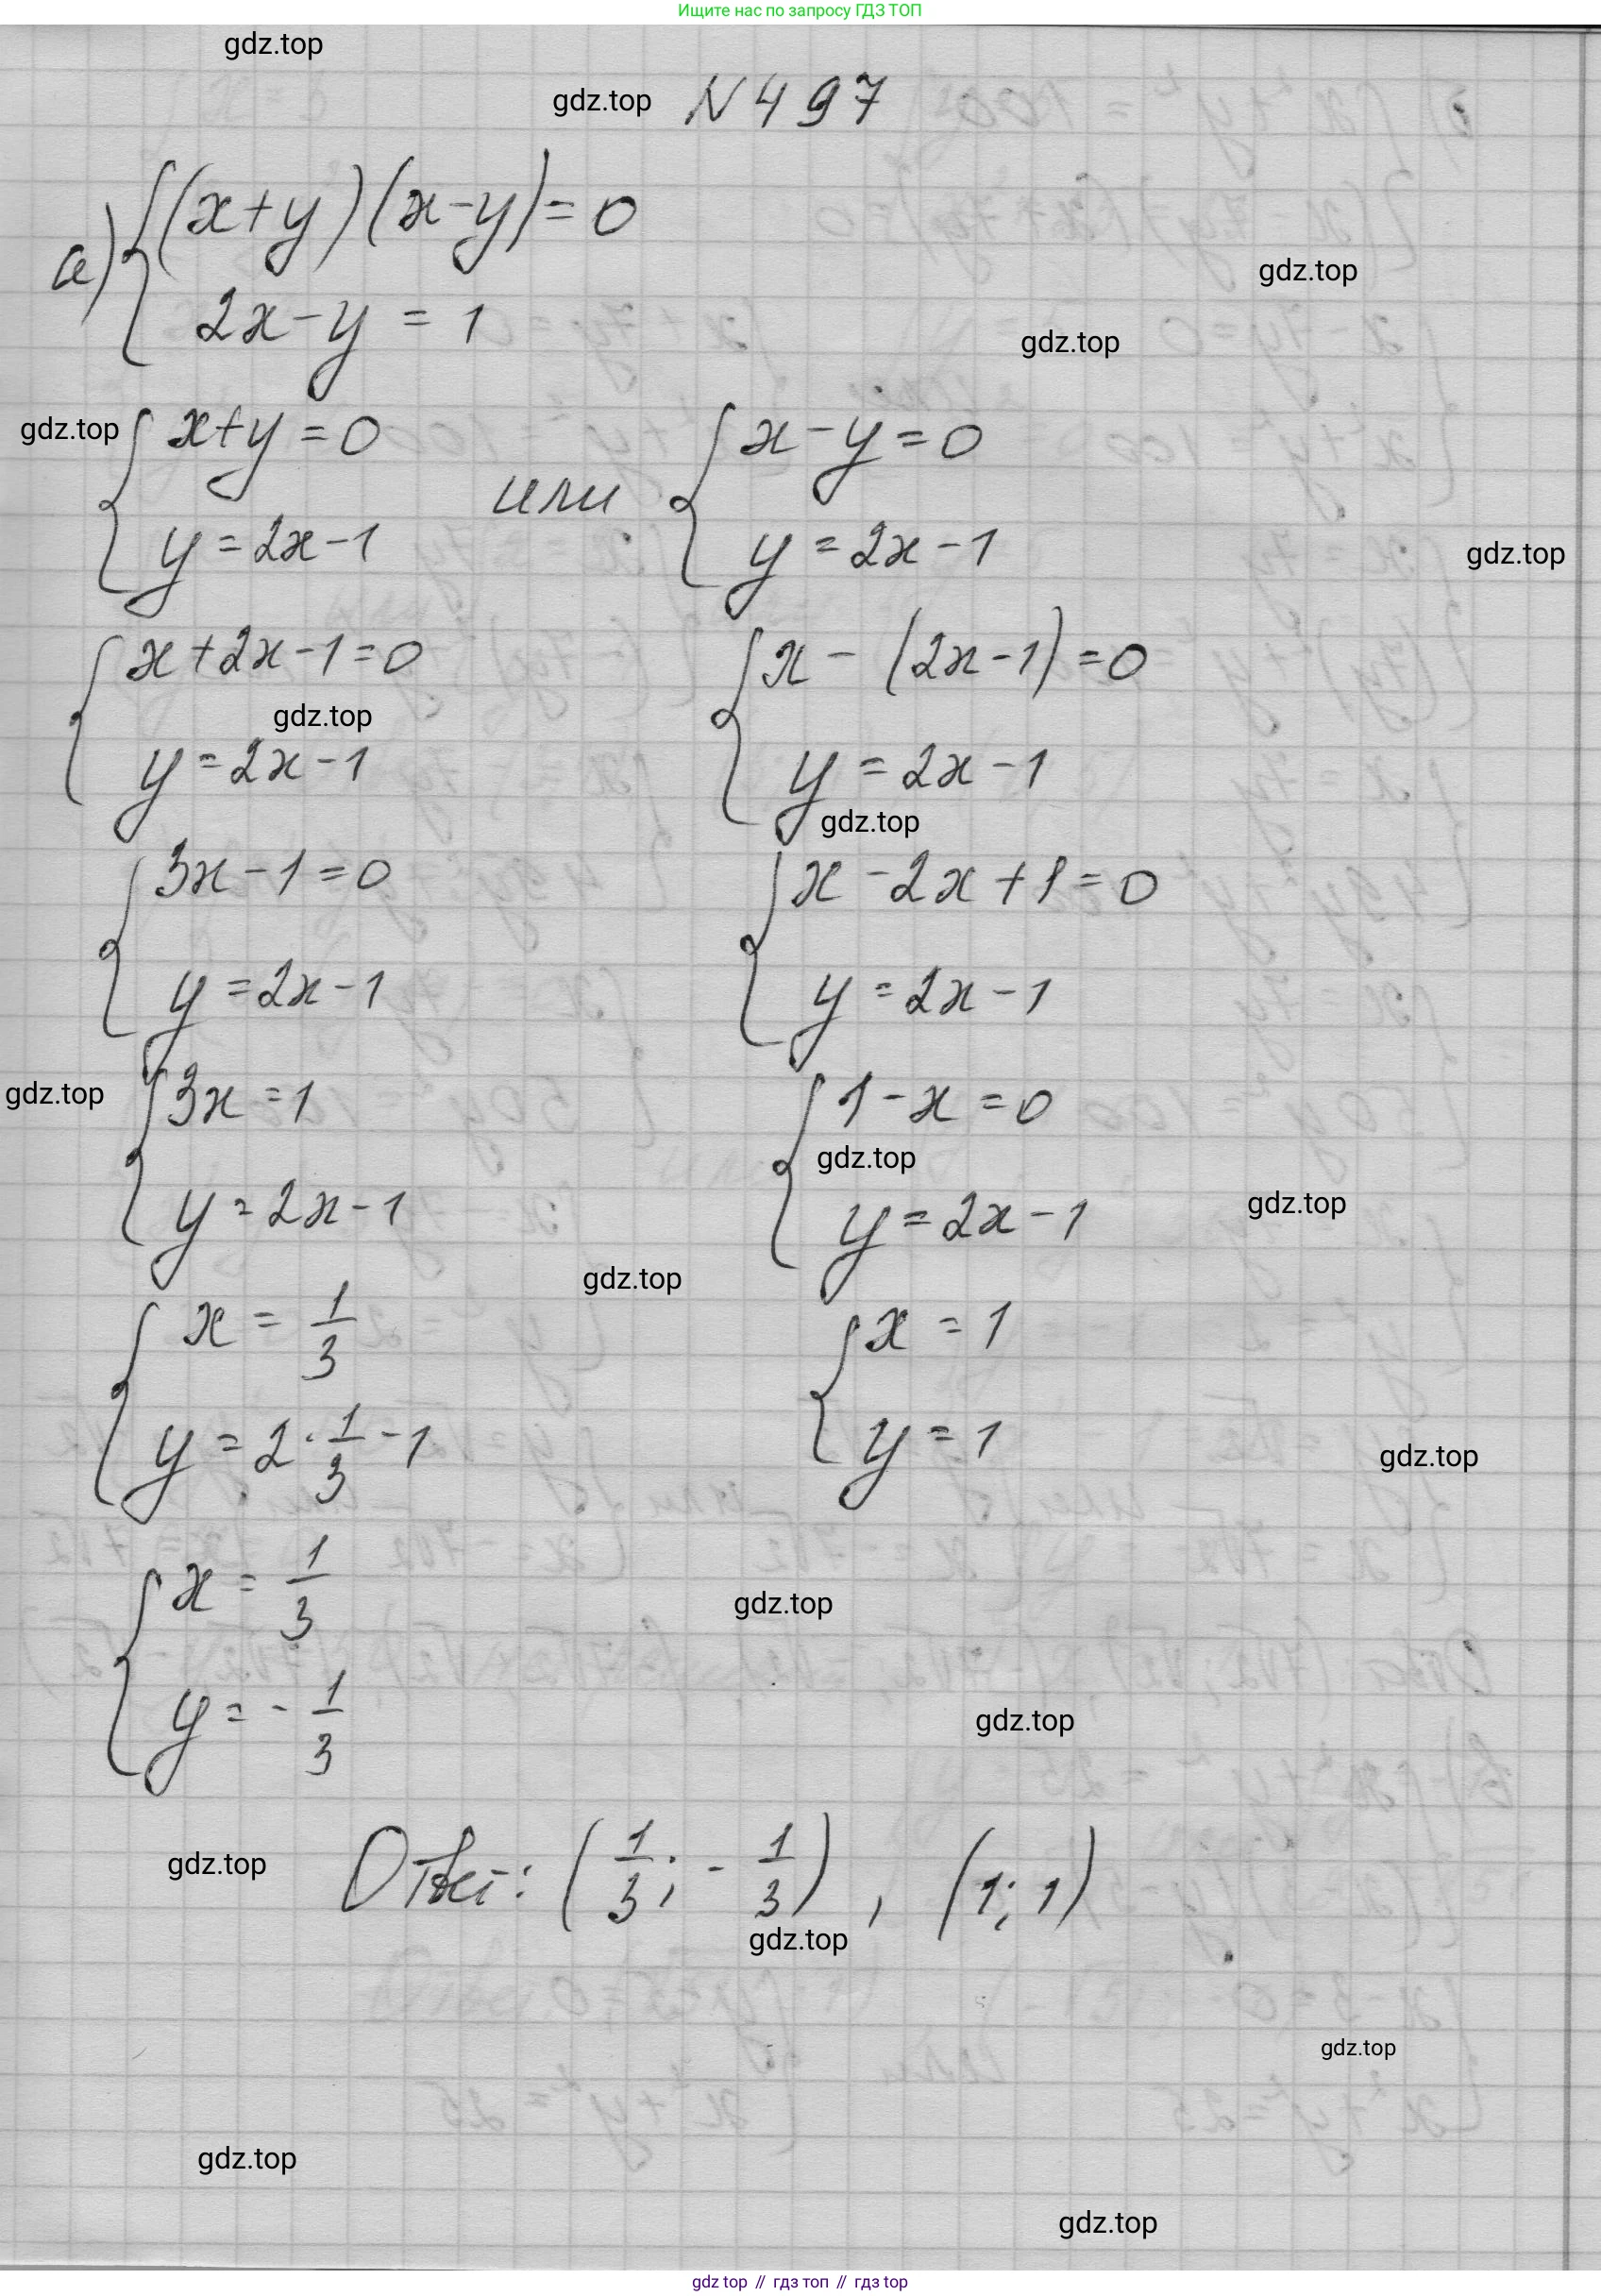 Ищите нас по запросу ГДЗ ТОП
gdz.top
gdz.top N 497
а) { (x+y)(x-y)=0
2x-y = 1
gdz.top
gdz.top
gdz.top { x+y=0
y=2x-1
или { x-y=0
y=2x-1
gdz.top
{ x+2x-1=0
gdz.top
y=2x-1
{ x - (2x-1)=0
y=2x-1
gdz.top
{ 3x-1=0
y=2x-1
{ x-2x+1=0
y=2x-1
gdz.top { 3x=1
y=2x-1
{ 1-x=0
gdz.top
y=2x-1
gdz.top
gdz.top
{ x = 1/3
y = 2·1/3-1
{ x = 1
y = 1
gdz.top
{ x = 1/3
y = -1/3
gdz.top
gdz.top
gdz.top Ответ: (1/3; -1/3), (1; 1)
gdz.top
gdz.top
gdz.top
gdz.top
gdz top // гдз топ // гдз top